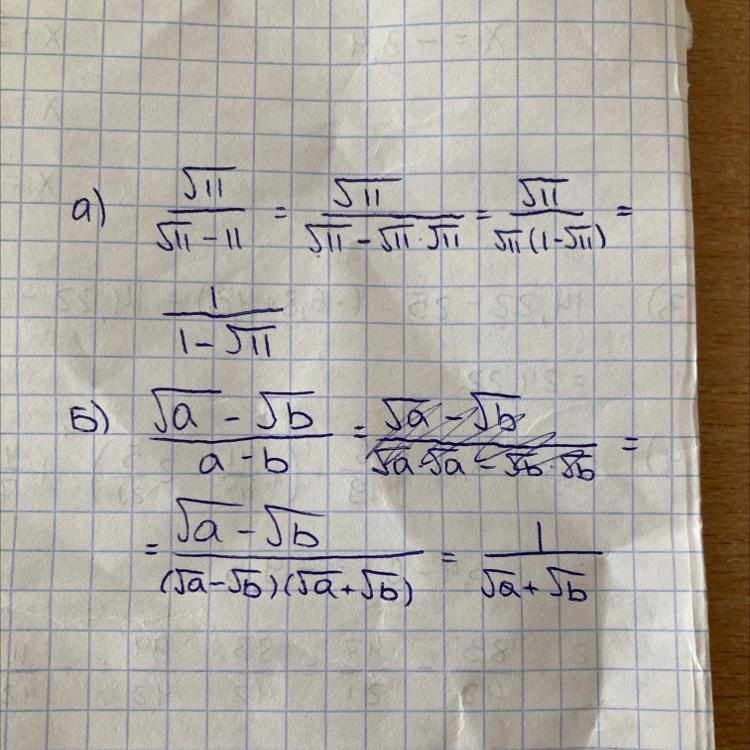 а) √11/(√11 − 11) = √11/(√11 − √11·√11) = √11/(√11(1−√11)) =
1/(1−√11)
Б) (√a − √b)/(a − b) = (√a − √b)/(√a·√a − √b·√b) =
= (√a − √b)/((√a−√b)(√a+√b)) = 1/(√a+√b)